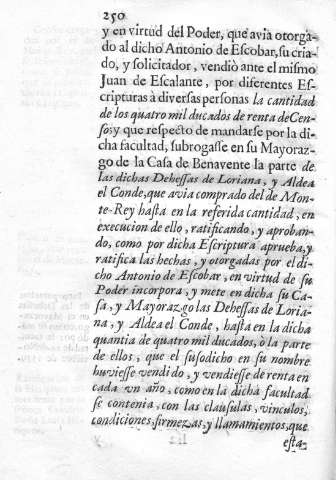 250
y en virtud del Poder, que avia otorga-
do al dicho Antonio de Escobar, su cria-
do, y solicitador, vendiò ante el mismo
Juan de Escalante, por diferentes Es-
cripturas à diversas personas la cantidad
de los quatro mil ducados de renta de Cen-
sos; y que respecto de mandarse por la di-
cha facultad, subrogasse en su Mayoraz-
go de la Casa de Benavente la parte de
las dichas Dehessas de Loriana, y Aldea
el Conde, que avia comprado del de Mon-
te-Rey hasta en la referida cantidad, en
execucion de ello, ratificando, y aproban-
do, como por dicha Escriptura aprueba, y
ratifica las hechas, y otorgadas por el di-
cho Antonio de Escobar, en virtud de su
Poder incorpora, y mete en dicha su Ca-
sa, y Mayorazgo las Dehessas de Loria-
na, y Aldea el Conde, hasta en la dicha
quantia de quatro mil ducados, ò la parte
de ellos, que el susodicho en su nombre
huviesse vendido, y vendiesse de renta en
cada un año, como en la dicha facultad
se contenia, con las clausulas, vinculos,
condiciones, firmezas, y llamamientos, que
esta-